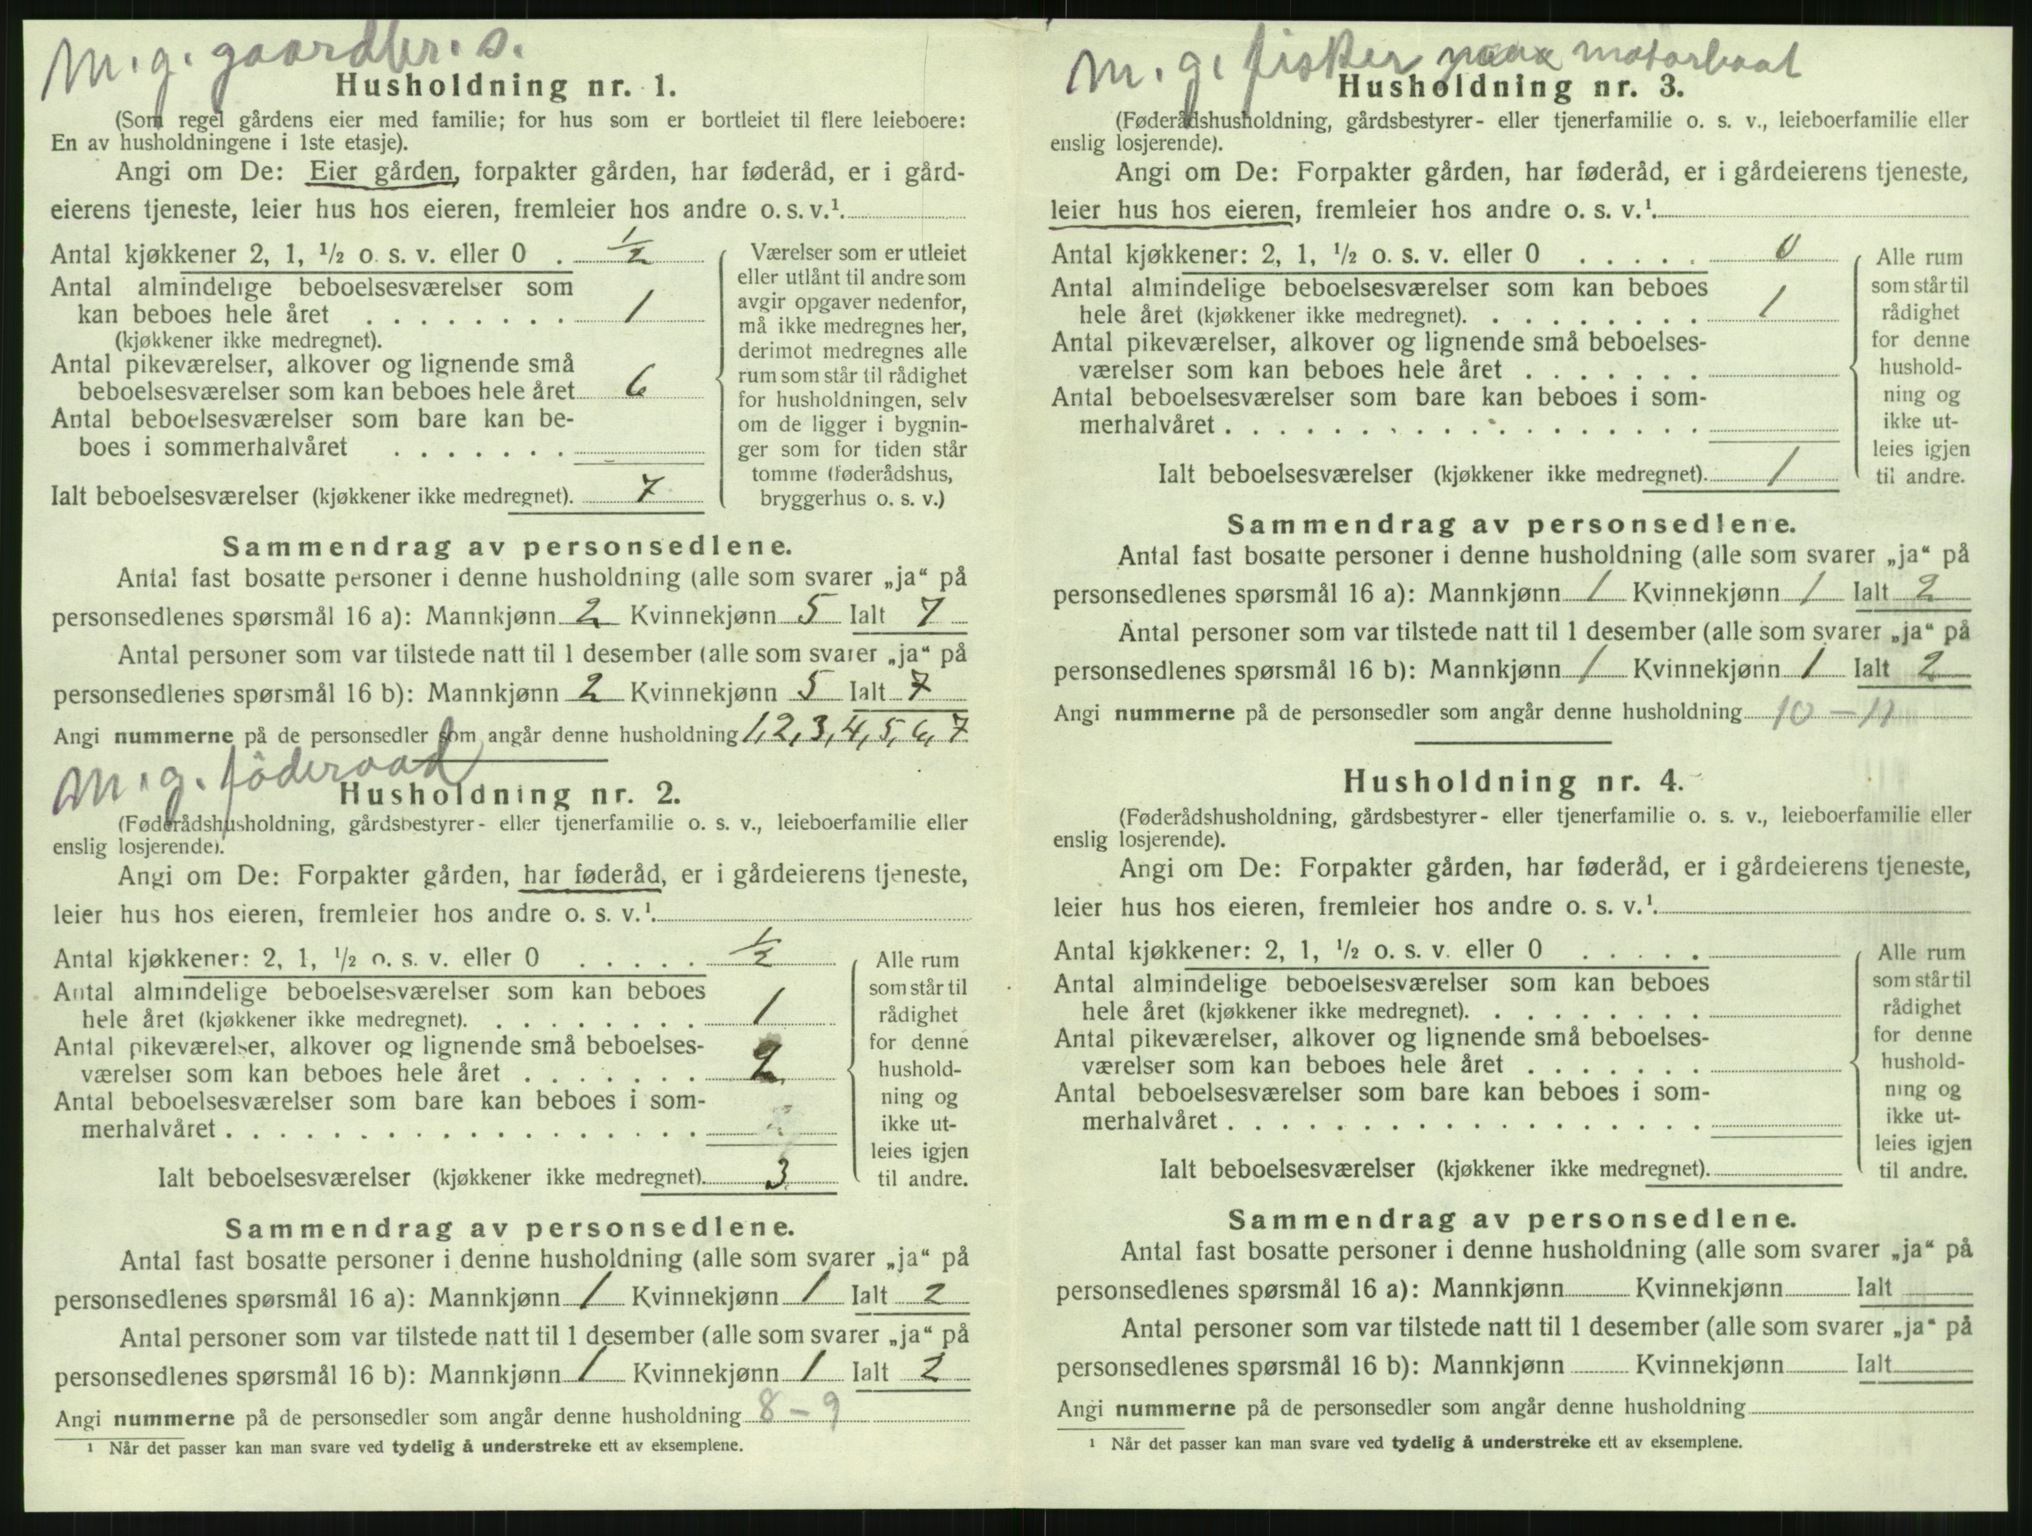 M. g. gaardbr. s.
Husholdning nr. 1.
(Som regel gårdens eier med familie; for hus som er bortleiet til flere leieboere:
En av husholdningene i 1ste etasje).
Angi om De: Eier gården, forpakter gården, har føderåd, er i gård-
eierens tjeneste, leier hus hos eieren, fremleier hos andre o. s. v.¹.
Antal kjøkkener 2, 1, ½ o. s. v. eller 0 . ½
Antal almindelige beboelsesværelser som
kan beboes hele året . . . . . . . . 1
(kjøkkener ikke medregnet).
Antal pikeværelser, alkover og lignende små
beboelsesværelser som kan beboes hele året 6
Antal beboelsesværelser som bare kan be-
boes i sommerhalvåret . . . . . . .
Ialt beboelsesværelser (kjøkkener ikke medregnet). 7
Værelser som er utleiet
eller utlånt til andre som
avgir opgaver nedenfor,
må ikke medregnes her,
derimot medregnes alle
rum som står til rådighet
for husholdningen, selv
om de ligger i bygnin-
ger som for tiden står
tomme (føderådshus,
bryggerhus o. s. v.)
Sammendrag av personsedlene.
Antal fast bosatte personer i denne husholdning (alle som svarer „ja“ på
personsedlenes spørsmål 16 a): Mannkjønn 2 Kvinnekjønn 5 Ialt 7
Antal personer som var tilstede natt til 1 desember (alle som svarer „ja“ på
personsedlenes spørsmål 16 b): Mannkjønn 2 Kvinnekjønn 5 Ialt 7
Angi nummerne på de personsedler som angår denne husholdning 1, 2, 3, 4, 5, 6, 7
M. g. föderaad
Husholdning nr. 2.
(Føderådshusholdning, gårdsbestyrer- eller tjenerfamilie o. s. v., leieboerfamilie eller
enslig losjerende).
Angi om De: Forpakter gården, har føderåd, er i gårdeierens tjeneste,
leier hus hos eieren, fremleier hos andre o. s. v.¹.
Antal kjøkkener: 2, 1, ½ o. s. v. eller 0 . . . . . ½
Antal almindelige beboelsesværelser som kan beboes
hele året (kjøkkener ikke medregnet). . . . . . . . . 1
Antal pikeværelser, alkover og lignende små beboelses-
værelser som kan beboes hele året . . . . . . . 2
Antal beboelsesværelser som bare kan beboes i som-
merhalvåret . . . . . . . . . . . . . . . . . .
Ialt beboelsesværelser (kjøkkener ikke medregnet). 3
Alle rum
som står til
rådighet
for denne
hushold-
ning og
ikke ut-
leies igjen
til andre.
Sammendrag av personsedlene.
Antal fast bosatte personer i denne husholdning (alle som svarer „ja“ på
personsedlenes spørsmål 16 a): Mannkjønn 1 Kvinnekjønn 1 Ialt 2
Antal personer som var tilstede natt til 1 desember (alle som svarer „ja“ på
personsedlenes spørsmål 16 b): Mannkjønn 1 Kvinnekjønn 1 Ialt 2
Angi nummerne på de personsedler som angår denne husholdning 8 – 9
¹ Når det passer kan man svare ved tydelig å understreke ett av eksemplene.
M. g. fisker motorbaat
Husholdning nr. 3.
(Føderådshusholdning, gårdsbestyrer- eller tjenerfamilie o. s. v., leieboerfamilie eller
enslig losjerende).
Angi om De: Forpakter gården, har føderåd, er i gårdeierens tjeneste,
leier hus hos eieren, fremleier hos andre o. s. v.¹.
Antal kjøkkener: 2, 1, ½ o. s. v. eller 0 . . . . . 0
Antal almindelige beboelsesværelser som kan beboes
hele året (kjøkkener ikke medregnet). . . . . . . . . 1
Antal pikeværelser, alkover og lignende små beboelses-
værelser som kan beboes hele året . . . . . . .
Antal beboelsesværelser som bare kan beboes i som-
merhalvåret . . . . . . . . . . . . . . . . . .
Ialt beboelsesværelser (kjøkkener ikke medregnet). 1
Alle rum
som står til
rådighet
for denne
hushold-
ning og
ikke ut-
leies igjen
til andre.
Sammendrag av personsedlene.
Antal fast bosatte personer i denne husholdning (alle som svarer „ja“ på
personsedlenes spørsmål 16 a): Mannkjønn 1 Kvinnekjønn 1 Ialt 2
Antal personer som var tilstede natt til 1 desember (alle som svarer „ja“ på
personsedlenes spørsmål 16 b): Mannkjønn 1 Kvinnekjønn 1 Ialt 2
Angi nummerne på de personsedler som angår denne husholdning 10 – 11
Husholdning nr. 4.
(Føderådshusholdning, gårdsbestyrer- eller tjenerfamilie o. s. v., leieboerfamilie eller
enslig losjerende).
Angi om De: Forpakter gården, har føderåd, er i gårdeierens tjeneste,
leier hus hos eieren, fremleier hos andre o. s. v.¹.
Antal kjøkkener: 2, 1, ½ o. s. v. eller 0 . . . . .
Antal almindelige beboelsesværelser som kan beboes
hele året (kjøkkener ikke medregnet). . . . . . . . .
Antal pikeværelser, alkover og lignende små beboelses-
værelser som kan beboes hele året . . . . . . .
Antal beboelsesværelser som bare kan beboes i som-
merhalvåret . . . . . . . . . . . . . . . . . .
Ialt beboelsesværelser (kjøkkener ikke medregnet).
Alle rum
som står til
rådighet
for denne
hushold-
ning og
ikke ut-
leies igjen
til andre.
Sammendrag av personsedlene.
Antal fast bosatte personer i denne husholdning (alle som svarer „ja“ på
personsedlenes spørsmål 16 a): Mannkjønn Kvinnekjønn Ialt
Antal personer som var tilstede natt til 1 desember (alle som svarer „ja“ på
personsedlenes spørsmål 16 b): Mannkjønn Kvinnekjønn Ialt
Angi nummerne på de personsedler som angår denne husholdning
¹ Når det passer kan man svare ved tydelig å understreke ett av eksemplene.